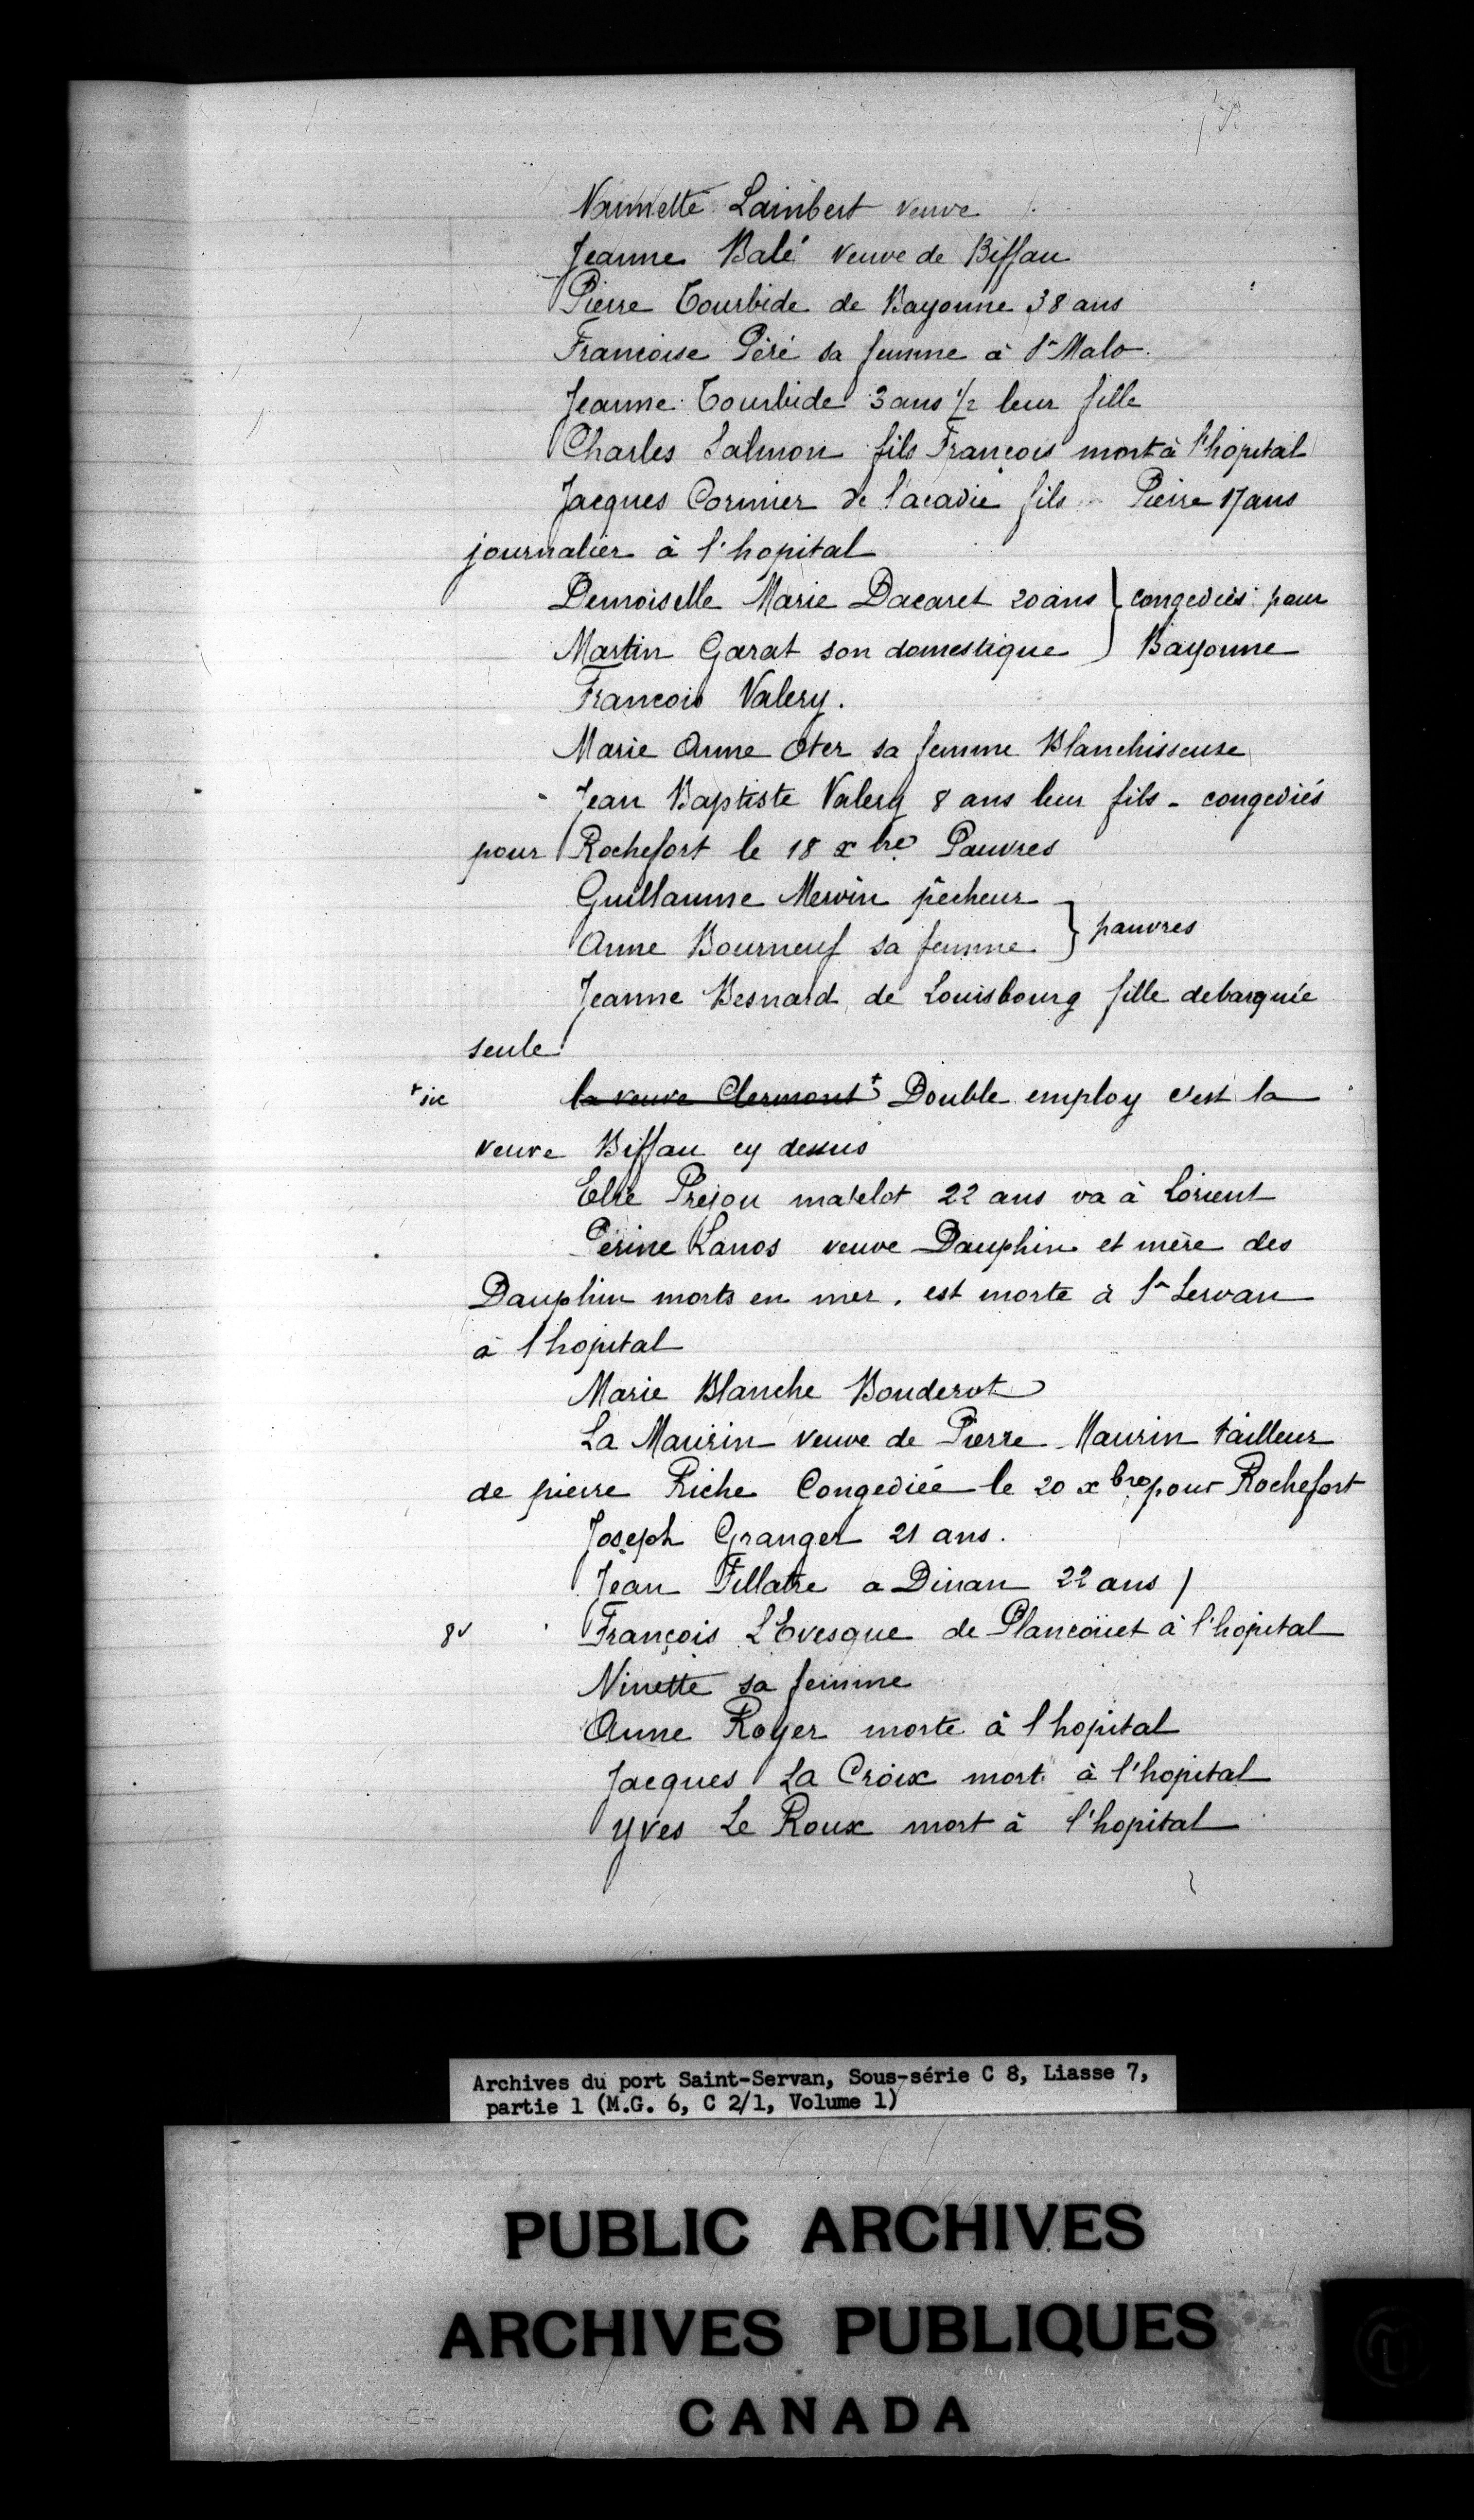 Nannette Lambert veuve
Jeanne Balé veuve de Biffau
Pierre Tourbide de Bayonne 38 ans
Francoise Péré sa femme à St Malo.
Jeanne Tourbide 3 ans 1/2 leur fille
Charles Salmon fils François mort à l'hopital
Jacques Cormier de l'acadie fils Pierre 17 ans
journalier à l'hopital
Demoiselle Marie Dacaret 20 ans } congediés pour
Martin Garat son domestique } Bayonne
Francois Valery.
Marie Anne Oter sa femme Blanchisseuse
Jean Baptiste Valery 8 ans leur fils - congediés
pour Rochefort le 18 xbre Pauvres
Guillaume Mervin pêcheur
Anne Bourneuf sa femme } pauvres
Jeanne Besnard de Louisbourg fille debarquée
seule
+ sic la veuve Clermont + Double employ c'est la
veuve Biffau cy dessus
Elie Prejou matelot 22 ans va à Lorient
Périne Lanos veuve Dauphin et mère des
Dauphin morts en mer. est morte à St Servan
à l'hopital
Marie Blanche Bouderot
La Maurin veuve de Pierre Maurin tailleur
de pierre Riche Congediée le 20 xbre pour Rochefort
Joseph Granger 21 ans.
Jean Fillatre a Dinan 22 ans /
François L'Evesque de Plancoüet à l'hopital
Ninette sa femme
Anne Royer morte à l'hopital
Jacques La Croix mort à l'hopital
Yves Le Roux mort à l'hopital
Archives du port Saint-Servan, Sous-série C 8, Liasse 7,
partie 1 (M.G. 6, C 2/1, Volume 1)
PUBLIC ARCHIVES
ARCHIVES PUBLIQUES
CANADA